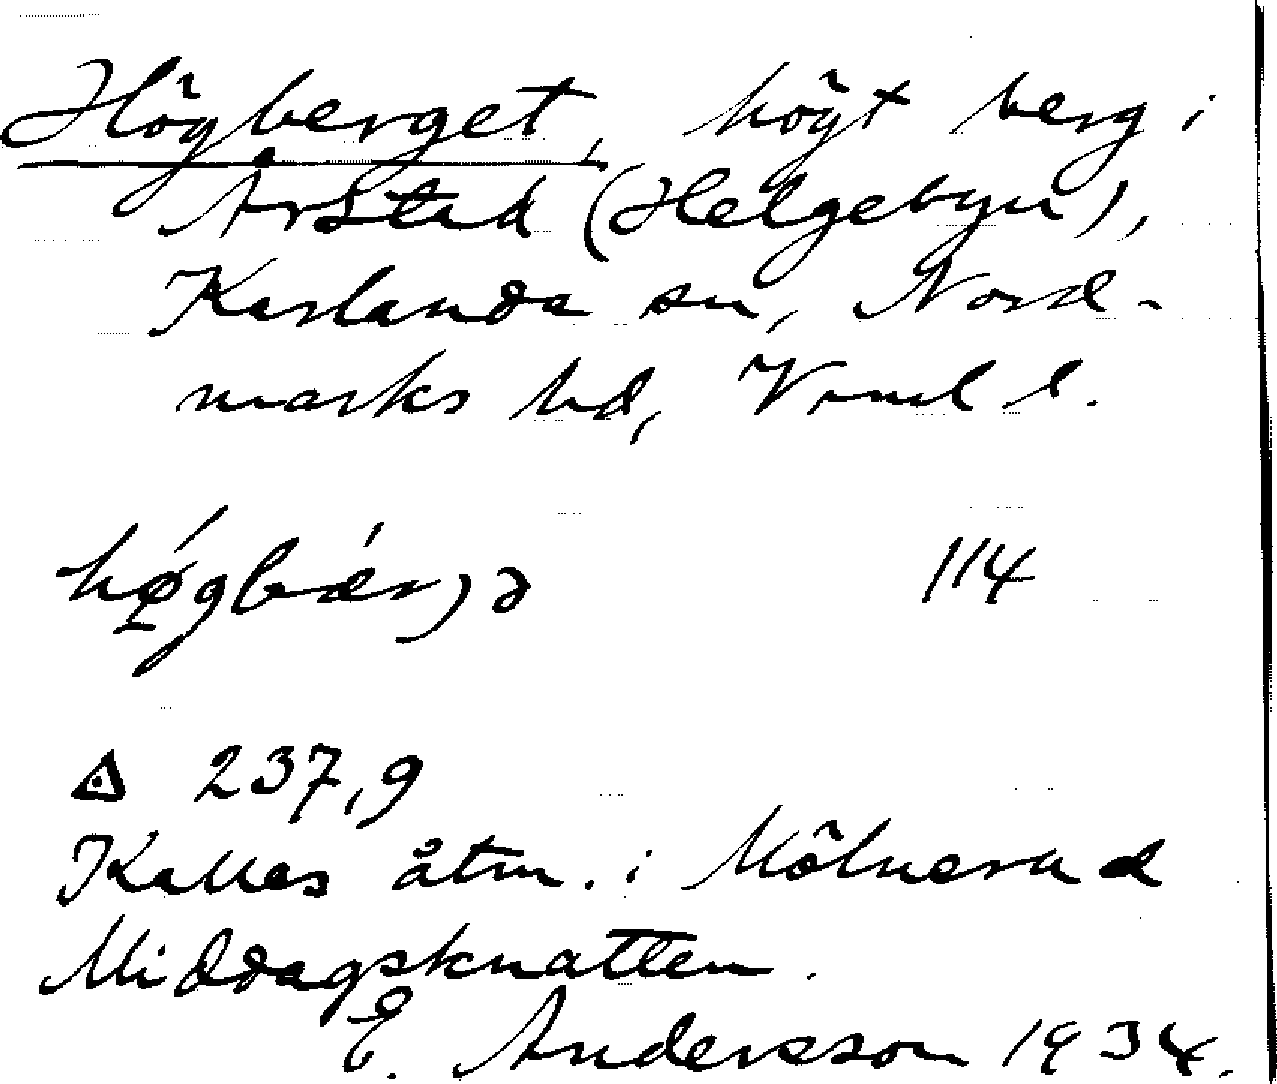 Högberget, högt berg i
Årstad (Helgebyn),
Karlanda sn, Nord-
marks hd, Vrml l.
hǿ̨gbǽr)ə 114
237,9
Kallas åtm. i Mölnerud
Middagsknatten.
E. Andersson 1934.